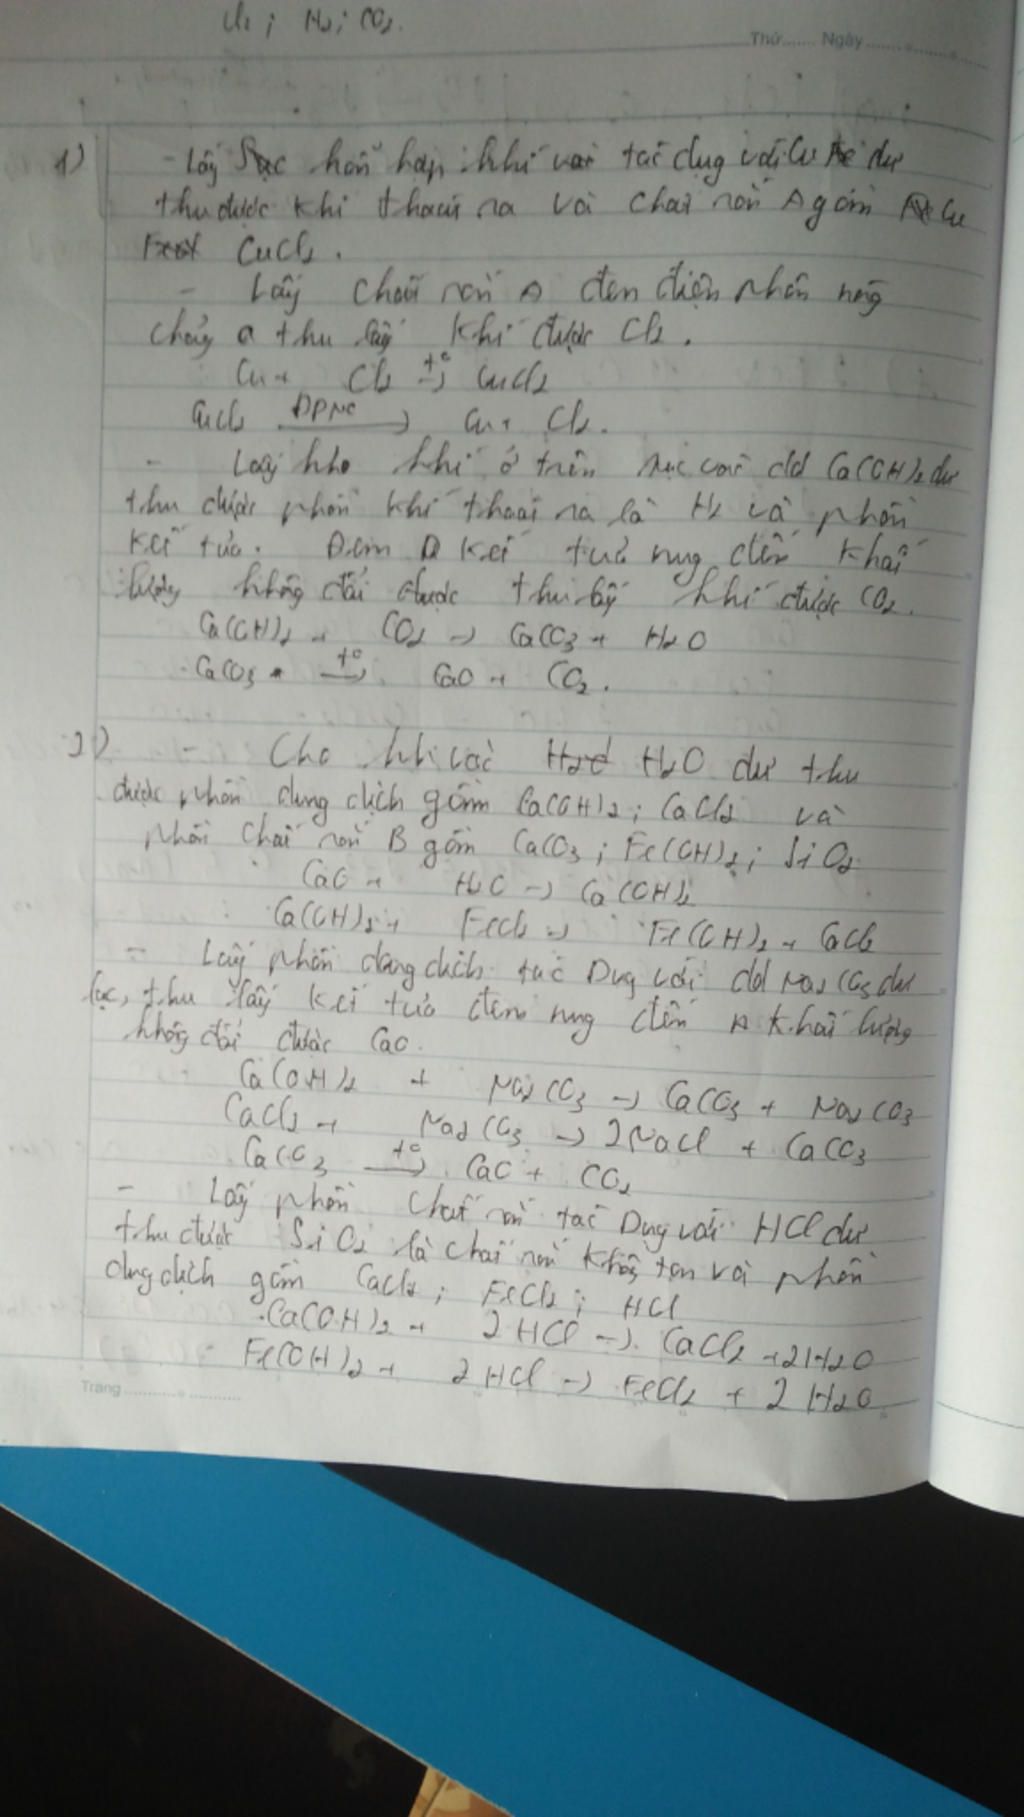 Cl₂; H₂; CO₂.
Thứ....... Ngày
1) - Lấy Sục hỗn hợp khí vào tác dụng với Cu dư
thu được khí thoát ra và chất rắn A gồm Cu
CuCl₂.
- Lấy chất rắn A đem điện phân nóng
chảy thu lấy khí được Cl₂.
Cu + Cl₂ t°→ CuCl₂
CuCl₂ ĐPNC→ Cu + Cl₂.
- Lấy khí ở trên sục vào dd Ca(OH)₂ dư
thu được phần khí thoát ra là H₂ và phần
kết tủa. Đem kết tủa nung đến khối
lượng không đổi được thu lấy khí được CO₂.
Ca(OH)₂ + CO₂ → CaCO₃ + H₂O
CaCO₃ t°→ CaO + CO₂.
2) - Cho hh vào H₂O dư thu
được phần dung dịch gồm Ca(OH)₂; CaCl₂ và
phần chất rắn B gồm CaCO₃; Fe(OH)₂; SiO₂
CaO + H₂O → Ca(OH)₂
Ca(OH)₂ + FeCl₂ → Fe(OH)₂ + CaCl₂
- Lấy phần dung dịch tác Dụng với dd Na₂CO₃ dư
lọc, thu lấy kết tủa đem nung đến khối lượng
không đổi được CaO.
Ca(OH)₂ + Na₂CO₃ → CaCO₃ + Na₂CO₃
CaCl₂ + Na₂CO₃ → 2NaCl + CaCO₃
CaCO₃ t°→ CaO + CO₂
- Lấy phần chất rắn tác Dụng với HCl dư
thu được SiO₂ là chất rắn không tan và phần
dung dịch gồm CaCl₂; FeCl₂; HCl
Ca(OH)₂ + 2HCl → CaCl₂ + 2H₂O
Fe(OH)₂ + 2HCl → FeCl₂ + 2H₂O
Trang